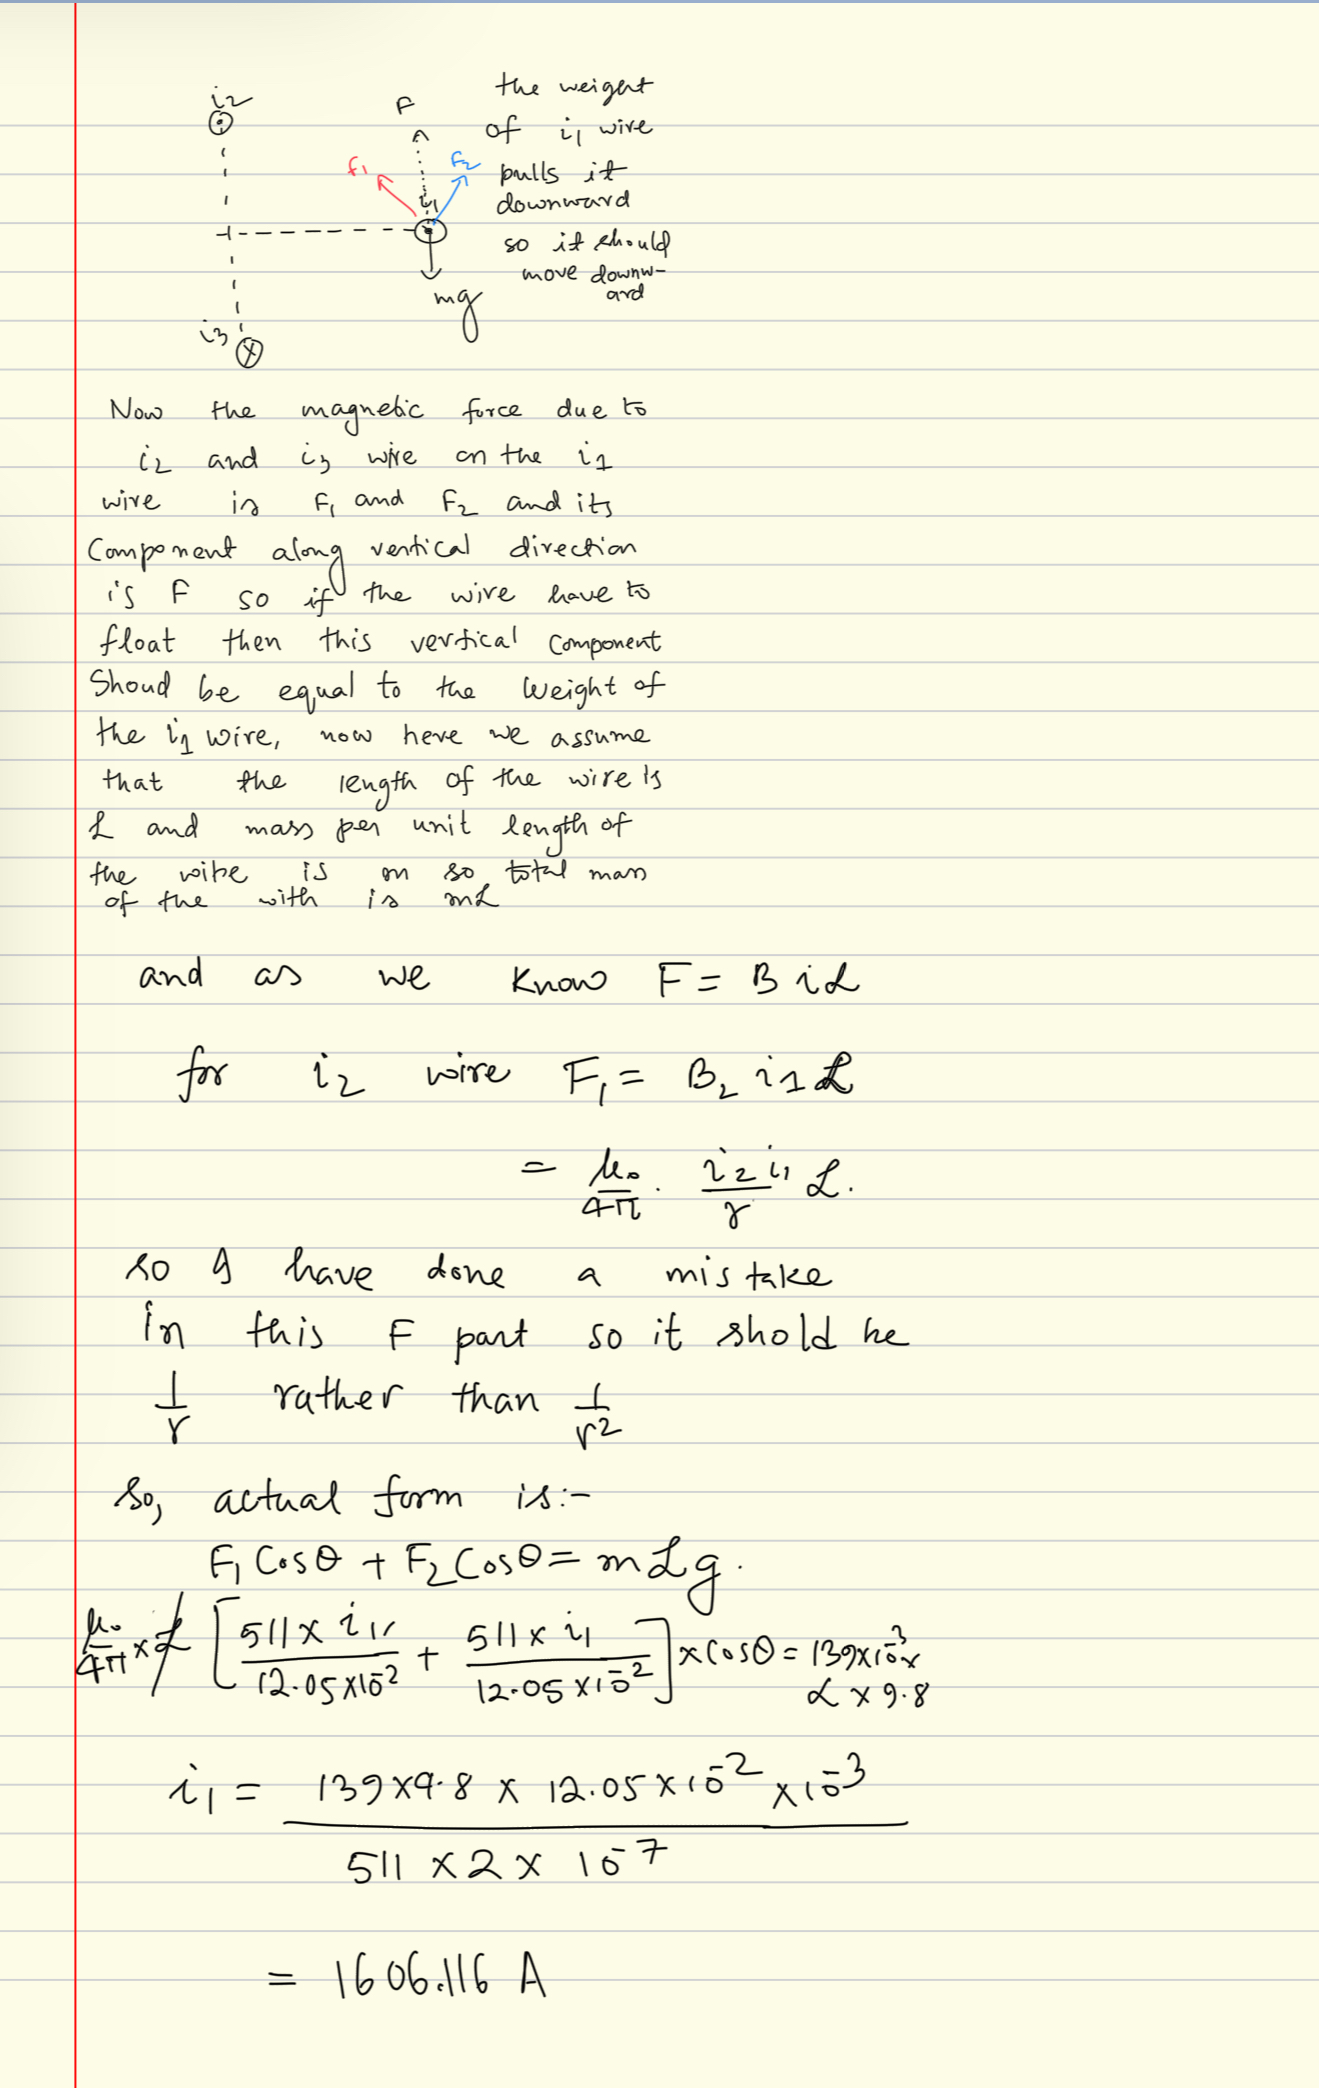 i2
F
the weight
of i1 wire
f1
F2
pulls it
i1
downward
so it should
move downw-
ard
mg
i3
Now the magnetic force due to
i2 and i3 wire on the i1
wire is F1 and F2 and its
Component along vertical direction
is F so if the wire have to
float then this vertical component
Shoud be equal to the weight of
the i1 wire, now here we assume
that the length of the wire is
L and mass per unit length of
the wire is m so total mass
of the with is mL
and as we know F = B i L
for i2 wire F1 = B2 i1 L
= μ0/4π · i2 i1/r L.
so I have done a mistake
in this F part so it shold be
1/r rather than 1/r²
So, actual form is:-
F1 Cosθ + F2 Cosθ = mLg.
μ0/4π × L [511 × i1/12.05×10⁻² + 511 × i1/12.05×10⁻²] × Cosθ = 139×10⁻³×
L × 9.8
i1 = 139×9.8 × 12.05×10⁻² ×10⁻³
511 × 2 × 10⁻⁷
= 1606.116 A